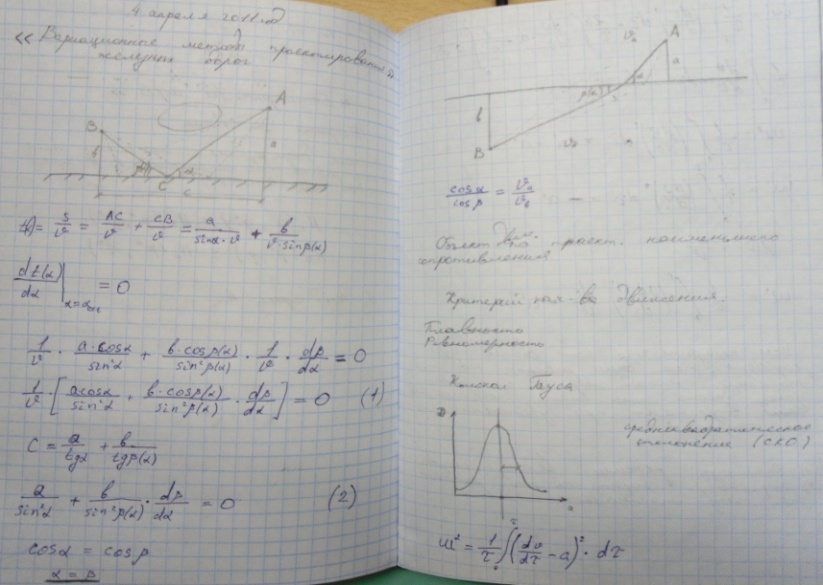 4 апреля 2011 год
«Вариационные методы проектирования
железных дорог»
A
B
a
C
c
= S/v = AC/v + CB/v = a/(sinα·v) + b/(v·sinβ(α))
dt(α)/dα | = 0
1/v · a·cosα/sin²α + b·cosβ(α)/sin²β(α) · 1/v · dβ/dα = 0
1/v · [a cosα/sin²α + b·cosβ(α)/sin²β(α) · dβ/dα] = 0 (1)
C = a/tgα + b/tgβ(α)
a/sin²α + b/sin²β(α) · dβ/dα = 0 (2)
cosα = cosβ
α = β
A
a
α
β(α)
b
B
cosα/cosβ = vₐ/v_b
Объект проект. наименьшего
сопротивления
Критерий движения.
Плавность
Равномерность
Гауса
среднеквадратическое
отклонение (СКО)
ω² = 1/τ ∫₀ (dv/dτ − a)² · dτ